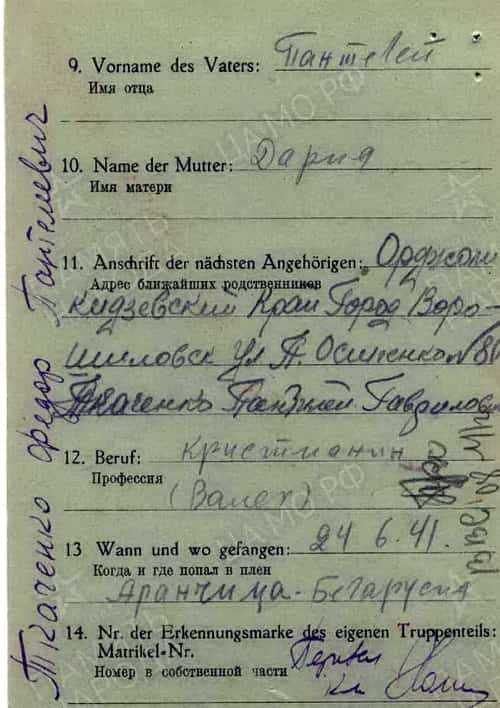 9. Vorname des Vaters: Пантелей
Имя отца
10. Name der Mutter: Дария
Имя матери
11. Anschrift der nächsten Angehörigen: Орджони
Адрес ближайших родственников
кидзевский Край Город Воро-
шиловск ул П. Осипенко № 80
Ткаченко Гаврилович
12. Beruf: Кристианин
Профессия
13 Wann und wo gefangen: 24 6. 41.
Когда и где попал в плен
Аранчица - Беларусия
14. Nr. der Erkennungsmarke des eigenen Truppenteils:
Matrikel-Nr.
Номер в собственной части
Ткаченко Федор Пантелевич
ПАМЯТЬ
ЦАМО РФ